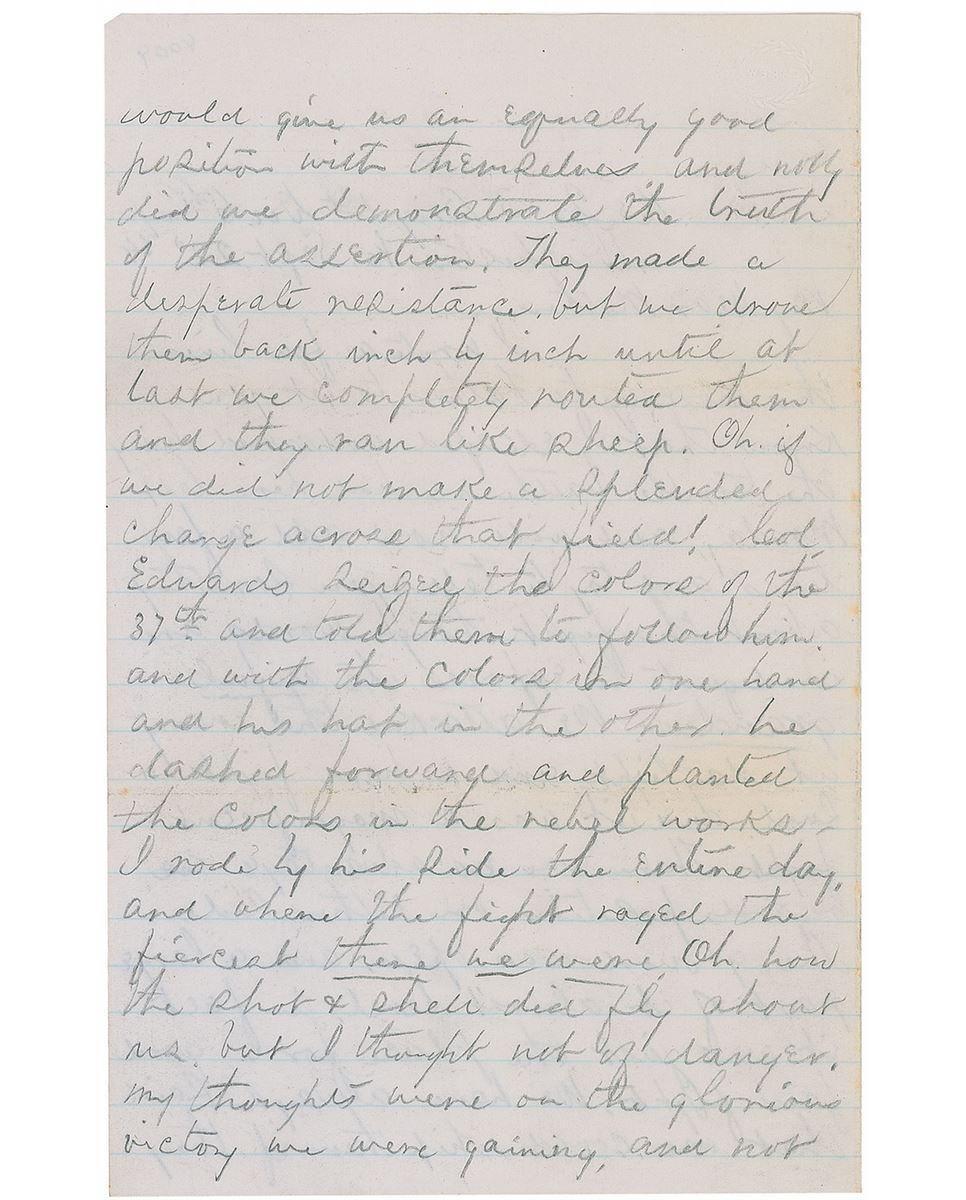 would give us an equally good
position with themselves, and nobly
did we demonstrate the truth
of the assertion. They made a
desperate resistance, but we drove
them back inch by inch until at
last we completely routed them
and they ran like sheep. Oh. if
we did not make a splended
charge across that field! Col.
Edwards seized the colors of the
37th and told them to follow him,
and with the colors in one hand
and his hat in the other he
dashed forward and planted
the colors in the rebel works -
I rode by his side the entire day,
and where the fight raged the
fiercest there we were. Oh. how
the shot & shell did fly about
us, but I thought not of danger.
my thoughts were on the glorious
victory we were gaining, and not